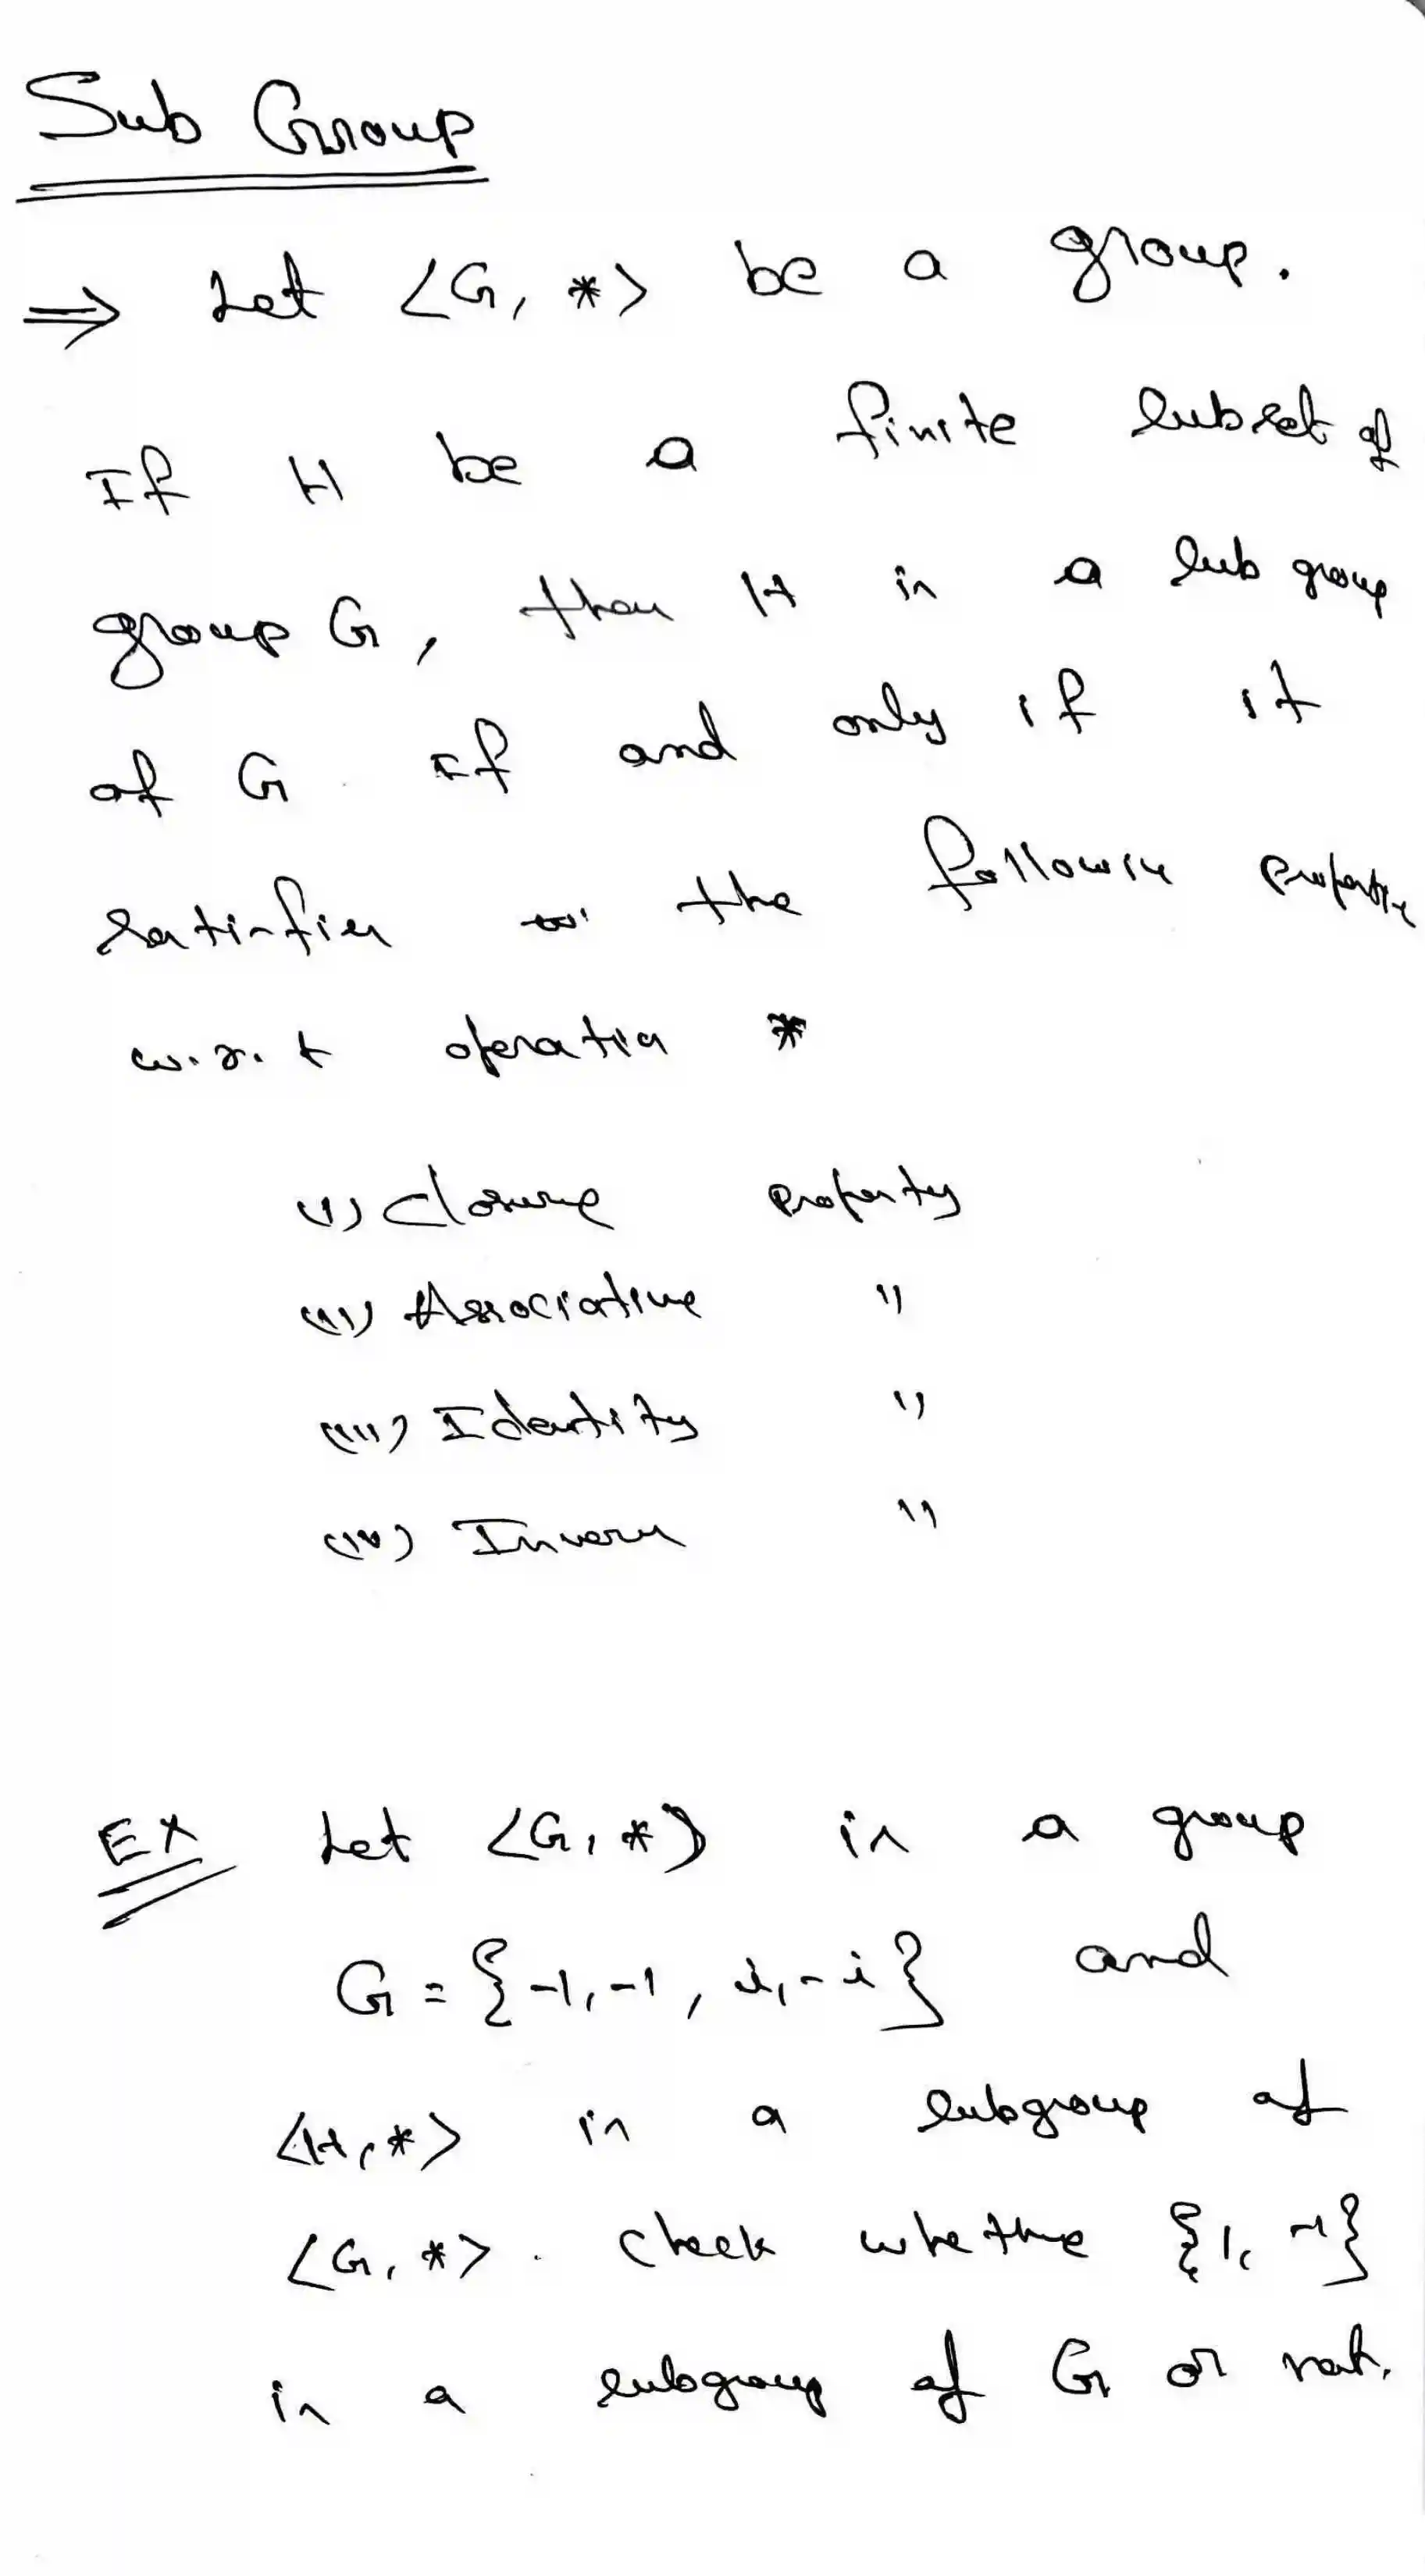 Sub Group
⇒ Let <G, *> be a group.
If H be a finite subset of
group G, then H is a sub group
of G if and only if it
satisfies the following properties
w.r.t operation *
(i) Closure property
(ii) Associative "
(iii) Identity "
(iv) Inverse "
EX Let <G, *> is a group
G = {-1, -1, i, -i} and
<H, *> is a subgroup of
<G, *>. Check whether {1, -1}
is a subgroup of G or not.